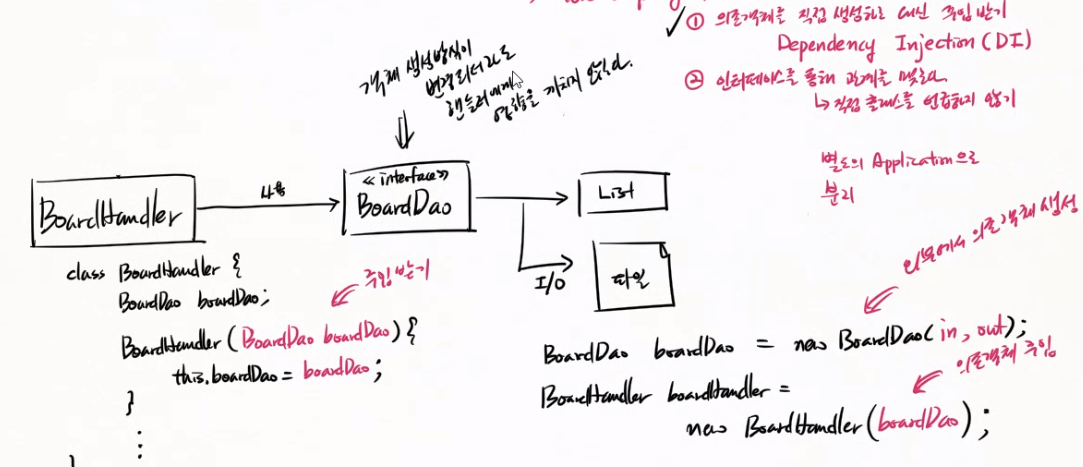 ① 의존객체를 직접 생성하는 대신 주입 받기
Dependency Injection (DI)
② 인터페이스를 통해 관계를 맺는다
↳ 직접 클래스를 언급하지 않기
객체 생성방식이
변경되더라도
핸들러에게
영향을 끼치지 않는다.
별도의 Application으로
분리
BoardHandler
사용
≪interface≫
BoardDao
List
I/O
파일
class BoardHandler {
BoardDao boardDao;
주입 받기
BoardHandler (BoardDao boardDao) {
this.boardDao = boardDao;
}
⋮
}
외부에서 의존객체 생성
BoardDao boardDao = new BoardDao(in, out);
의존객체 주입
BoardHandler boardHandler =
new BoardHandler(boardDao);